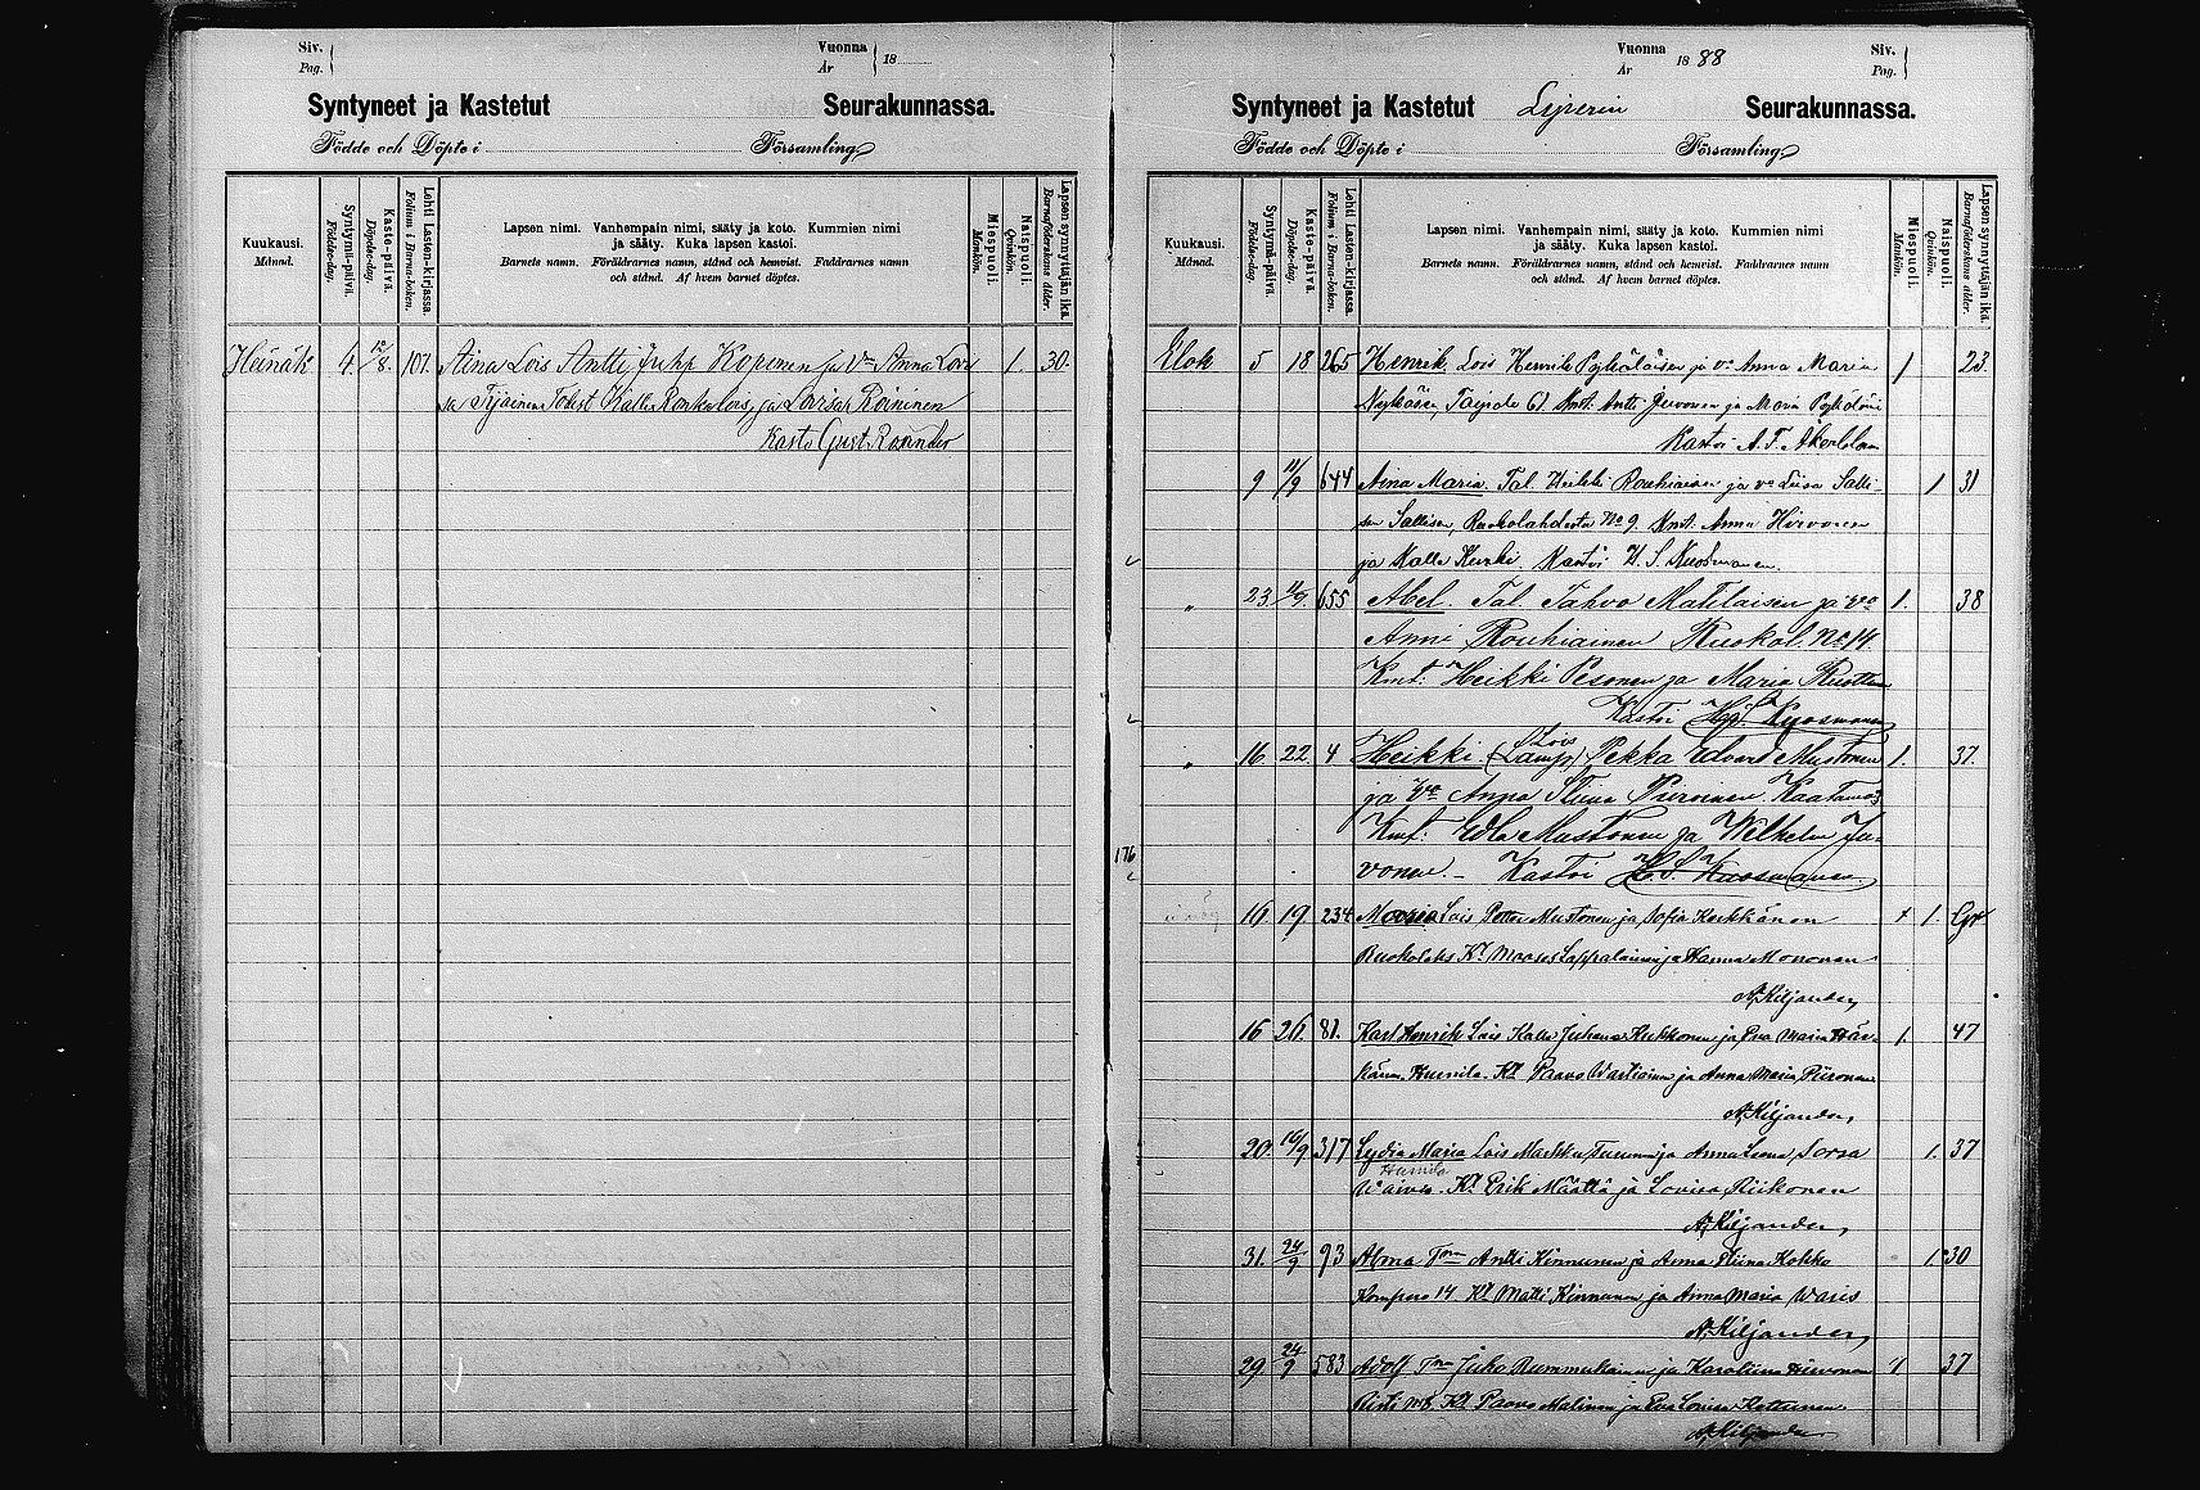 Siv.
Pag.
Vuonna
År
18
Syntyneet ja Kastetut Seurakunnassa.
Födde och Döpte i Församling
Kuukausi.
Månad.
Syntymä-päivä.
Födelse-dag.
Kaste-päivä.
Döpelse-dag.
Lehti Lasten-kirjassa.
Folium i Barna-boken.
Lapsen nimi. Vanhempain nimi, sääty ja koto. Kummien nimi
ja sääty. Kuka lapsen kastoi.
Barnets namn. Föräldrarnes namn, stånd och hemvist. Faddrarnes namn
och stånd. Af hvem barnet döptes.
Miespuoli.
Mankön.
Naispuoli.
Qvinkön.
Lapsen synnyttäjän ikä.
Barnaföderskans ålder.
Heinäk 4. 12/8. 107. Aina Lois Antti Juho Kopinen ja Vmo Anna Lovi 1. 30.
sa Kalle ja Lovisa Roininen
Kasto Gust. Roander
Vuonna
År
1888
Siv.
Pag.
Syntyneet ja Kastetut Liperin Seurakunnassa.
Födde och Döpte i Församling
Kuukausi.
Månad.
Syntymä-päivä.
Födelse-dag.
Kaste-päivä.
Döpelse-dag.
Lehti Lasten-kirjassa.
Folium i Barna-boken.
Lapsen nimi. Vanhempain nimi, sääty ja koto. Kummien nimi
ja sääty. Kuka lapsen kastoi.
Barnets namn. Föräldrarnes namn, stånd och hemvist. Faddrarnes namn
och stånd. Af hvem barnet döptes.
Miespuoli.
Mankön.
Naispuoli.
Qvinkön.
Lapsen synnyttäjän ikä.
Barnaföderskans ålder.
Elok 5 18 265 Henrik. Lois Henrik Pyykäläisen ja vo Anna Maria 1 23.
Taipale 61 Kmt: Antti Juvonen ja
Kastoi A. F. Åkerblom
9 11/9 644 Aina Maria. Tal. Heikki Rouhiainen ja vo Liisa Salli- 1 31
sen Sallisen, Ruokolahdesta No 9. Kmt. Anna Hirvonen
ja Kalle Kurki. Kastoi H. S. Kuosmanen.
" 23 11/9. 655 Abel. Tal. Tahvo Matilaisen ja vo 1. 38
Anni Rouhiainen Ruokol. No 14.
Kmt: Heikki Pesonen ja Maria Ruottinen
Kastoi H. S. Kuosmanen
" 16. 22 4 Heikki. (Lamp) Lois Pekka Edvard Mustonen 1. 37.
ja Vo Anna Stiina Piiroinen Kaatamo 3
Kmt: Edla Mustonen ja Wilhelm Ju-
vonen. - Kastoi H. S. Kuosmanen.
176
16. 19. 234 Maria Lois Petter Mustonen ja Sofia Karkkänen 1.
Ruokolaks Kt Mooses Lappalainen ja Hanna Mononen
A. Kiljander,
16 26. 81. Karl Henrik Lois Kalle Juhana Kukkonen ja Eva Maria Här- 1. 47
känen. Kt Paavo Wartiainen ja Anna Maria Piironen
A. Kiljander,
20. 16/9 317 Lydia Maria Lois Markku Turunen ja Anna Leena Sorsa 1. 37
Kt Erik Määttä ja Lovisa Riikonen
A. Kiljander,
31. 24/9 93 Alma Tmn Antti Kinnunen ja Anna Stiina Kokko 1. 30
Kompero 14 Kt Matti Kinnunen ja Anna Maria Waris
A. Kiljander,
29. 24/9 583 Adolf Tmn Juho Rummukainen ja Karoliina Hirvonen 1 37
Risti No 8. Kt Paavo Malinen ja Eva Lovisa Kettunen
A. Kiljander